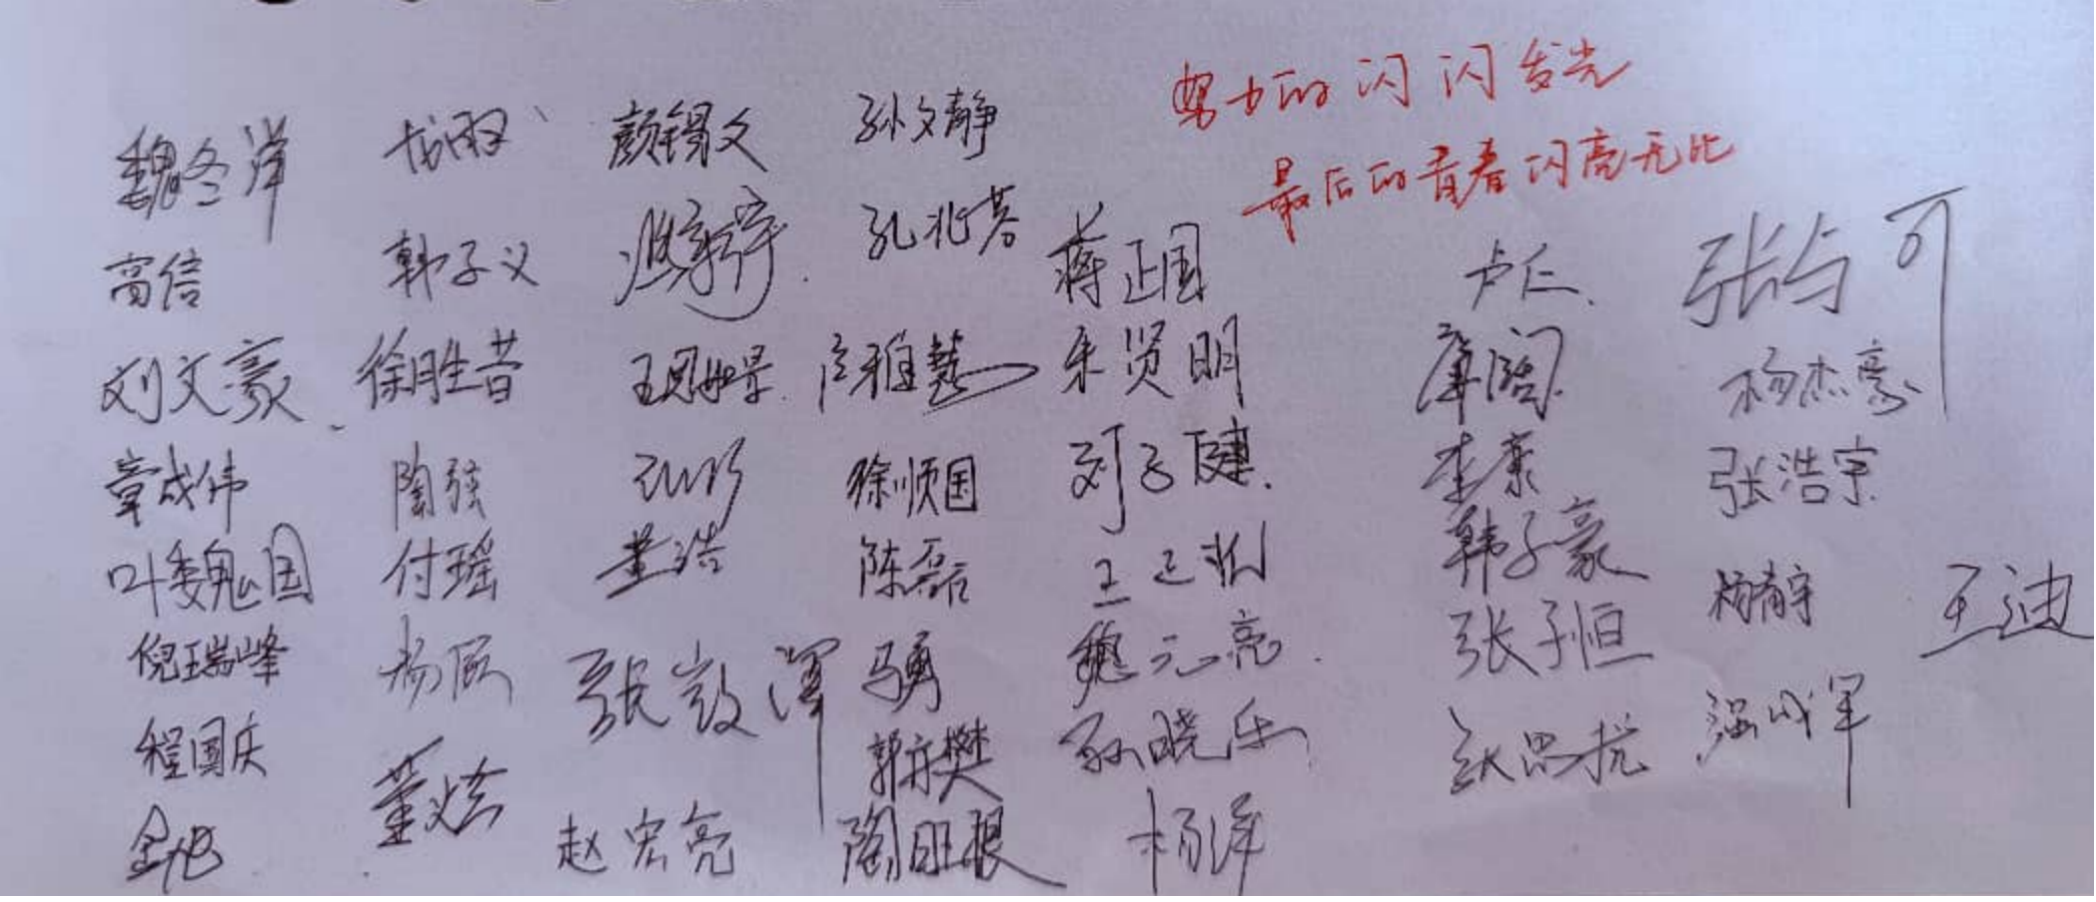 努力的闪闪发光
最后的青春闪亮无比
魏冬洋 戈雨 颜锡文 孙文静
高信 韩子义 孔兆芬 蒋正国 卢仁 张与可
刘文豪 徐胜昔 王凤娇 唐雅慧 朱贤明 库阔 杨杰豪
章成伟 陶弦 徐顺国 刘子健 李康 张浩宇
叶魏国 付瑶 董浩 陈磊 韩子豪 杨青宇 王迪
倪瑞峰 杨辰 张效浑 马勇 魏元亮 张子恒
程国庆 董炫 郭亦樊 孙晓乐 张思扰 强成军
金旭 赵宏亮 陶旺根 杨洋